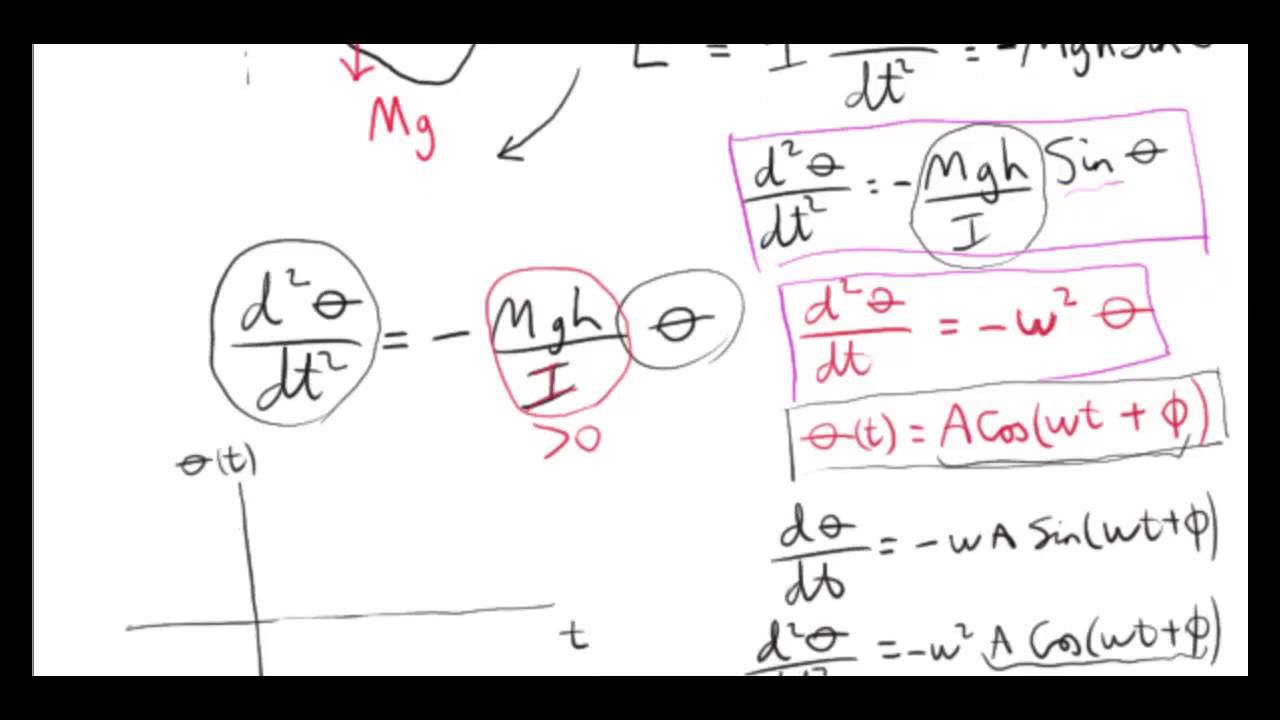 L = I /dt² = -Mgh Sin θ
Mg
d²θ/dt² = - Mgh/I Sin θ
d²θ/dt² = - Mgh/I θ
>0
d²θ/dt = -w² θ
θ(t) = A Cos(wt + φ)
θ(t)
t
dθ/dt = -wA Sin(wt+φ)
d²θ/dt² = -w² A Cos(wt+φ)